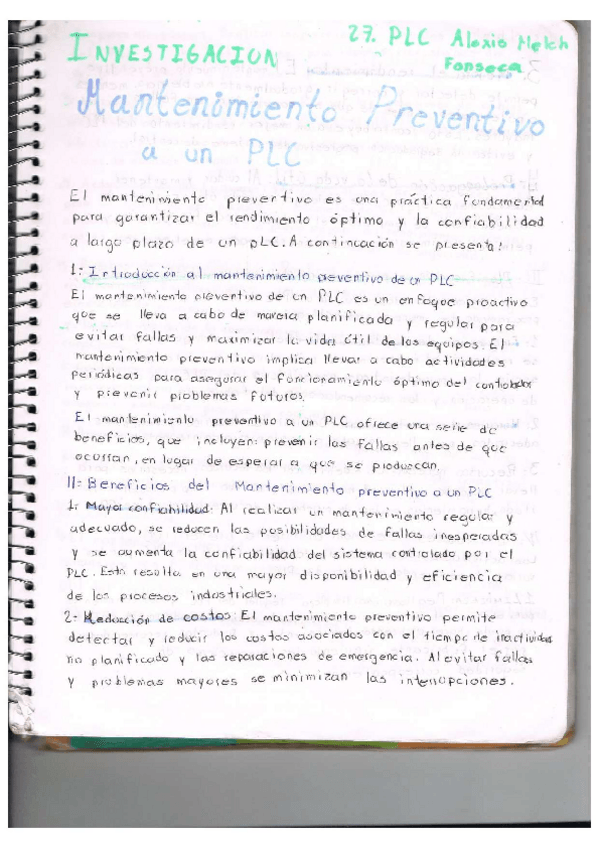 27. PLC Alexio Melch
INVESTIGACION
Fonseca
Mantenimiento Preventivo
a un PLC
El mantenimiento preventivo es una práctica fundamental
para garantizar el rendimiento óptimo y la confiabilidad
a largo plazo de un PLC. A continuación se presenta:
1: Introducción al mantenimiento preventivo de un PLC
El mantenimiento preventivo de un PLC es un enfoque proactivo
que se lleva a cabo de manera planificada y regular para
evitar fallas y maximizar la vida útil de los equipos. El
mantenimiento preventivo implica llevar a cabo actividades
periódicas para asegurar el funcionamiento óptimo del controlador
y prevenir problemas futuros.
El mantenimiento preventivo a un PLC ofrece una serie de
beneficios, que incluyen: prevenir las fallas antes de que
ocurran, en lugar de esperar a que se produzcan.
II: Beneficios del Mantenimiento preventivo a un PLC
1: Mayor confiabilidad: Al realizar un mantenimiento regular y
adecuado, se reducen las posibilidades de fallas inesperadas
y se aumenta la confiabilidad del sistema controlado por el
PLC. Esto resulta en una mayor disponibilidad y eficiencia
de los procesos industriales.
2: Reducción de costos: El mantenimiento preventivo permite
detectar y reducir los costos asociados con el tiempo de inactividad
no planificado y las reparaciones de emergencia. Al evitar fallas
y problemas mayores se minimizan las interrupciones.